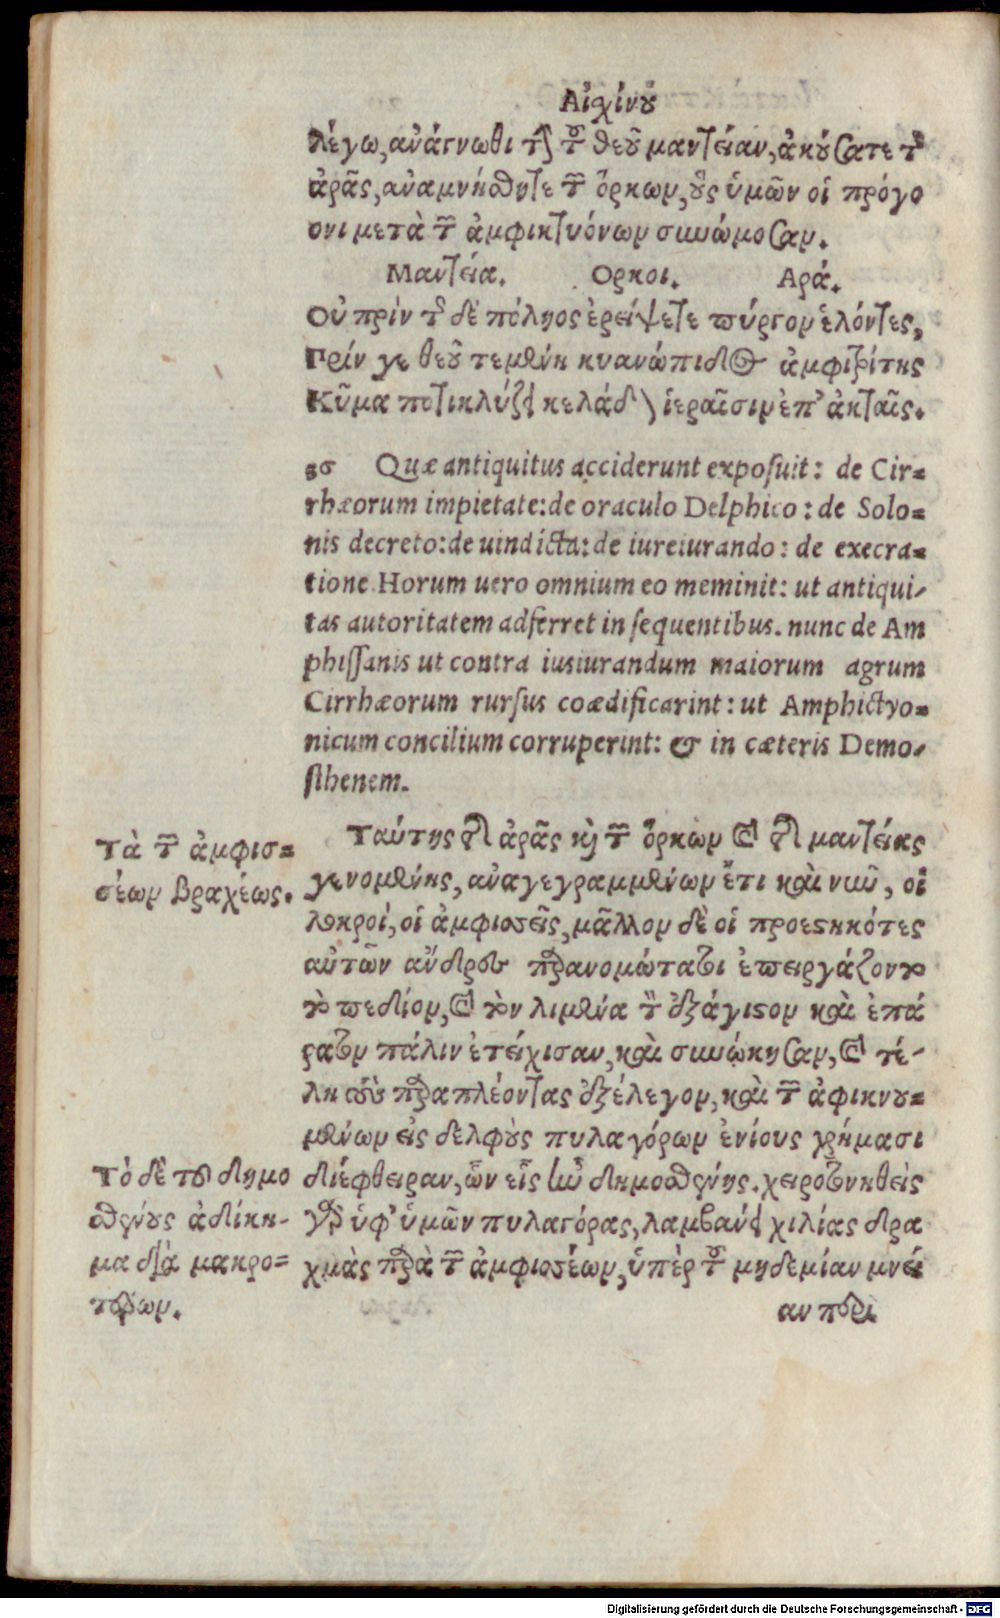 Αἰχίνου
λέγω, ἀνάγνωθι τὴν τοῦ θεοῦ μαντείαν, ἀκούσατε τῆς
ἀρᾶς, ἀναμνήσθητε τῶν ὅρκων, οὓς ὑμῶν οἱ πρόγο
ονι μετὰ τῶν ἀμφικτυόνων συνώμοσαν.
Μαντεία. Ορκοι. Αρά.
Οὐ πρὶν τῆς δὲ πόληος ἐρείψετε πύργον ἑλόντες,
Πρίν γε θεοῦ τεμένη κυανώπιδος ἀμφιτρίτης
Κῦμα ποτικλύζῃ κελάδουν ἱεραῖσιν ἐπ' ἀκταῖς.
Quæ antiquitus acciderunt exposuit: de Cir=
rhæorum impietate: de oraculo Delphico: de Solo=
nis decreto: de uindicta: de iureiurando: de execra=
tione. Horum uero omnium eo meminit: ut antiqui-
tas autoritatem adferret in sequentibus. nunc de Am
phissanis ut contra iusiurandum maiorum agrum
Cirrhæorum rursus coædificarint: ut Amphictyo=
nicum concilium corruperint: & in cæteris Demo-
sthenem.
Τὰ τῶν ἀμφισ=
σέων βραχέως.
Ταύτης τῆς ἀρᾶς καὶ τῶν ὅρκων καὶ τῆς μαντείας
γενομένης, ἀναγεγραμμένων ἔτι καὶ νῦν, οἱ
λοκροί, οἱ ἀμφισσεῖς, μᾶλλον δὲ οἱ προεστηκότες
αὐτῶν ἄνδρες παρανομώτατοι ἐπειργάζοντο
τὸ πεδίον, καὶ τὸν λιμένα τὸν ἐξάγιστον καὶ ἐπά
ρατον πάλιν ἐτείχισαν, καὶ συνῴκησαν, καὶ τέ-
λη τοὺς παραπλέοντας ἐξέλεγον, καὶ τῶν ἀφικνου=
μένων εἰς δελφοὺς πυλαγόρων ἐνίους χρήμασι
διέφθειραν, ὧν εἷς ἦν δημοσθένης. χειροτονηθεὶς
γὰρ ὑφ' ὑμῶν πυλαγόρας, λαμβάνει χιλίας δρα
χμὰς παρὰ τῶν ἀμφισσέων, ὑπὲρ τοῦ μηδεμίαν μνεί
αν περὶ
Τὸ δὲ τοῦ δημο
σθένους ἀδίκη-
μα διὰ μακρο=
τέρων.
Digitalisierung gefördert durch die Deutsche Forschungsgemeinschaft - DFG